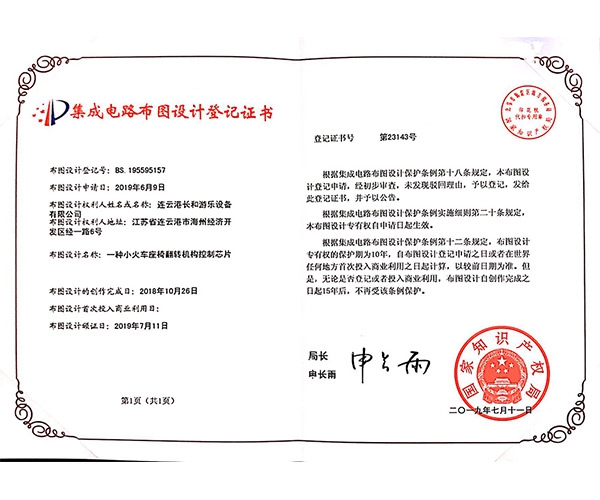 集成电路布图设计登记证书
布图设计登记号：BS. 195595157
布图设计申请日：2019年6月9日
布图设计权利人姓名或名称：连云港长和游乐设备
有限公司
布图设计权利人地址：江苏省连云港市海州经济开
发区经一路6号
布图设计名称：一种小火车座椅翻转机构控制芯片
布图设计的创作完成日：2018年10月26日
布图设计首次投入商业利用日：
布图设计颁证日：2019年7月11日
第1页（共1页）
登记证书号 第23143号
根据集成电路布图设计保护条例第十八条规定，本布图设
计登记申请，经初步审查，未发现驳回理由，予以登记，发给
此登记证书，并予以公告。
根据集成电路布图设计保护条例实施细则第二十条规定，
本布图设计专有权自申请日起生效。
根据集成电路布图设计保护条例第十二条规定，布图设计
专有权的保护期为10年，自布图设计登记申请之日或者在世界
任何地方首次投入商业利用之日起计算，以较前日期为准。但
是，无论是否登记或者投入商业利用，布图设计自创作完成之
日起15年后，不再受该条例保护。
局长
申长雨
申长雨
国家知识产权局
二〇一九年七月十一日